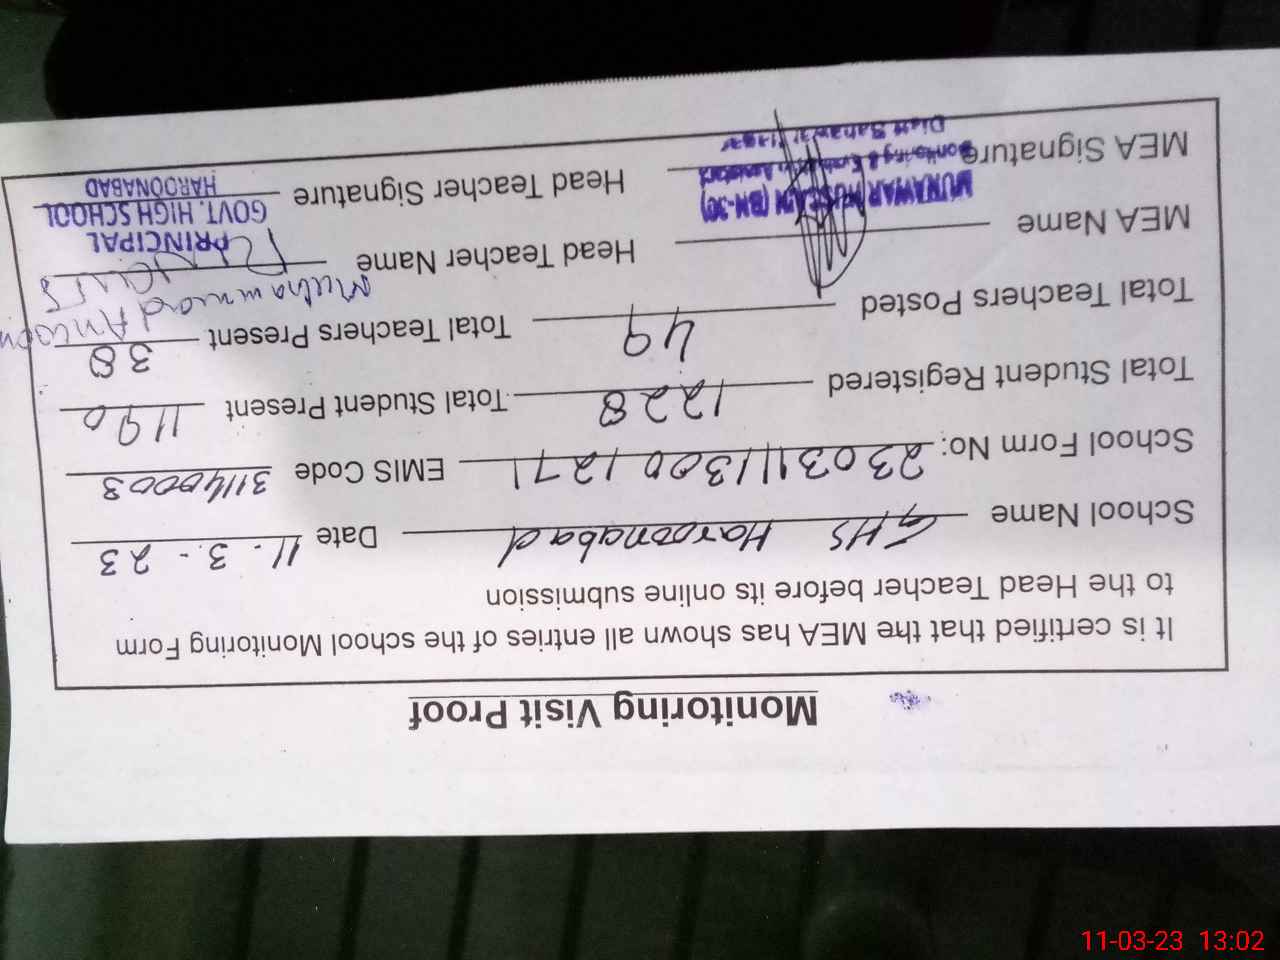 Monitoring Visit Proof
It is certified that the MEA has shown all entries of the school Monitoring Form
to the Head Teacher before its online submission
School Name GHS Haroonabad Date 11-3-23
School Form No: 23031113001271 EMIS Code 31140003
Total Student Registered 1228 Total Student Present 1190
Total Teachers Posted 49 Total Teachers Present 38
MEA Name Head Teacher Name Muhammad
MUNAWAR HUSSAIN (BN-30)
MEA Signature Head Teacher Signature
Monitoring &
Distt Bahawalnagar
PRINCIPAL
GOVT. HIGH SCHOOL
HAROONABAD
11-03-23 13:02